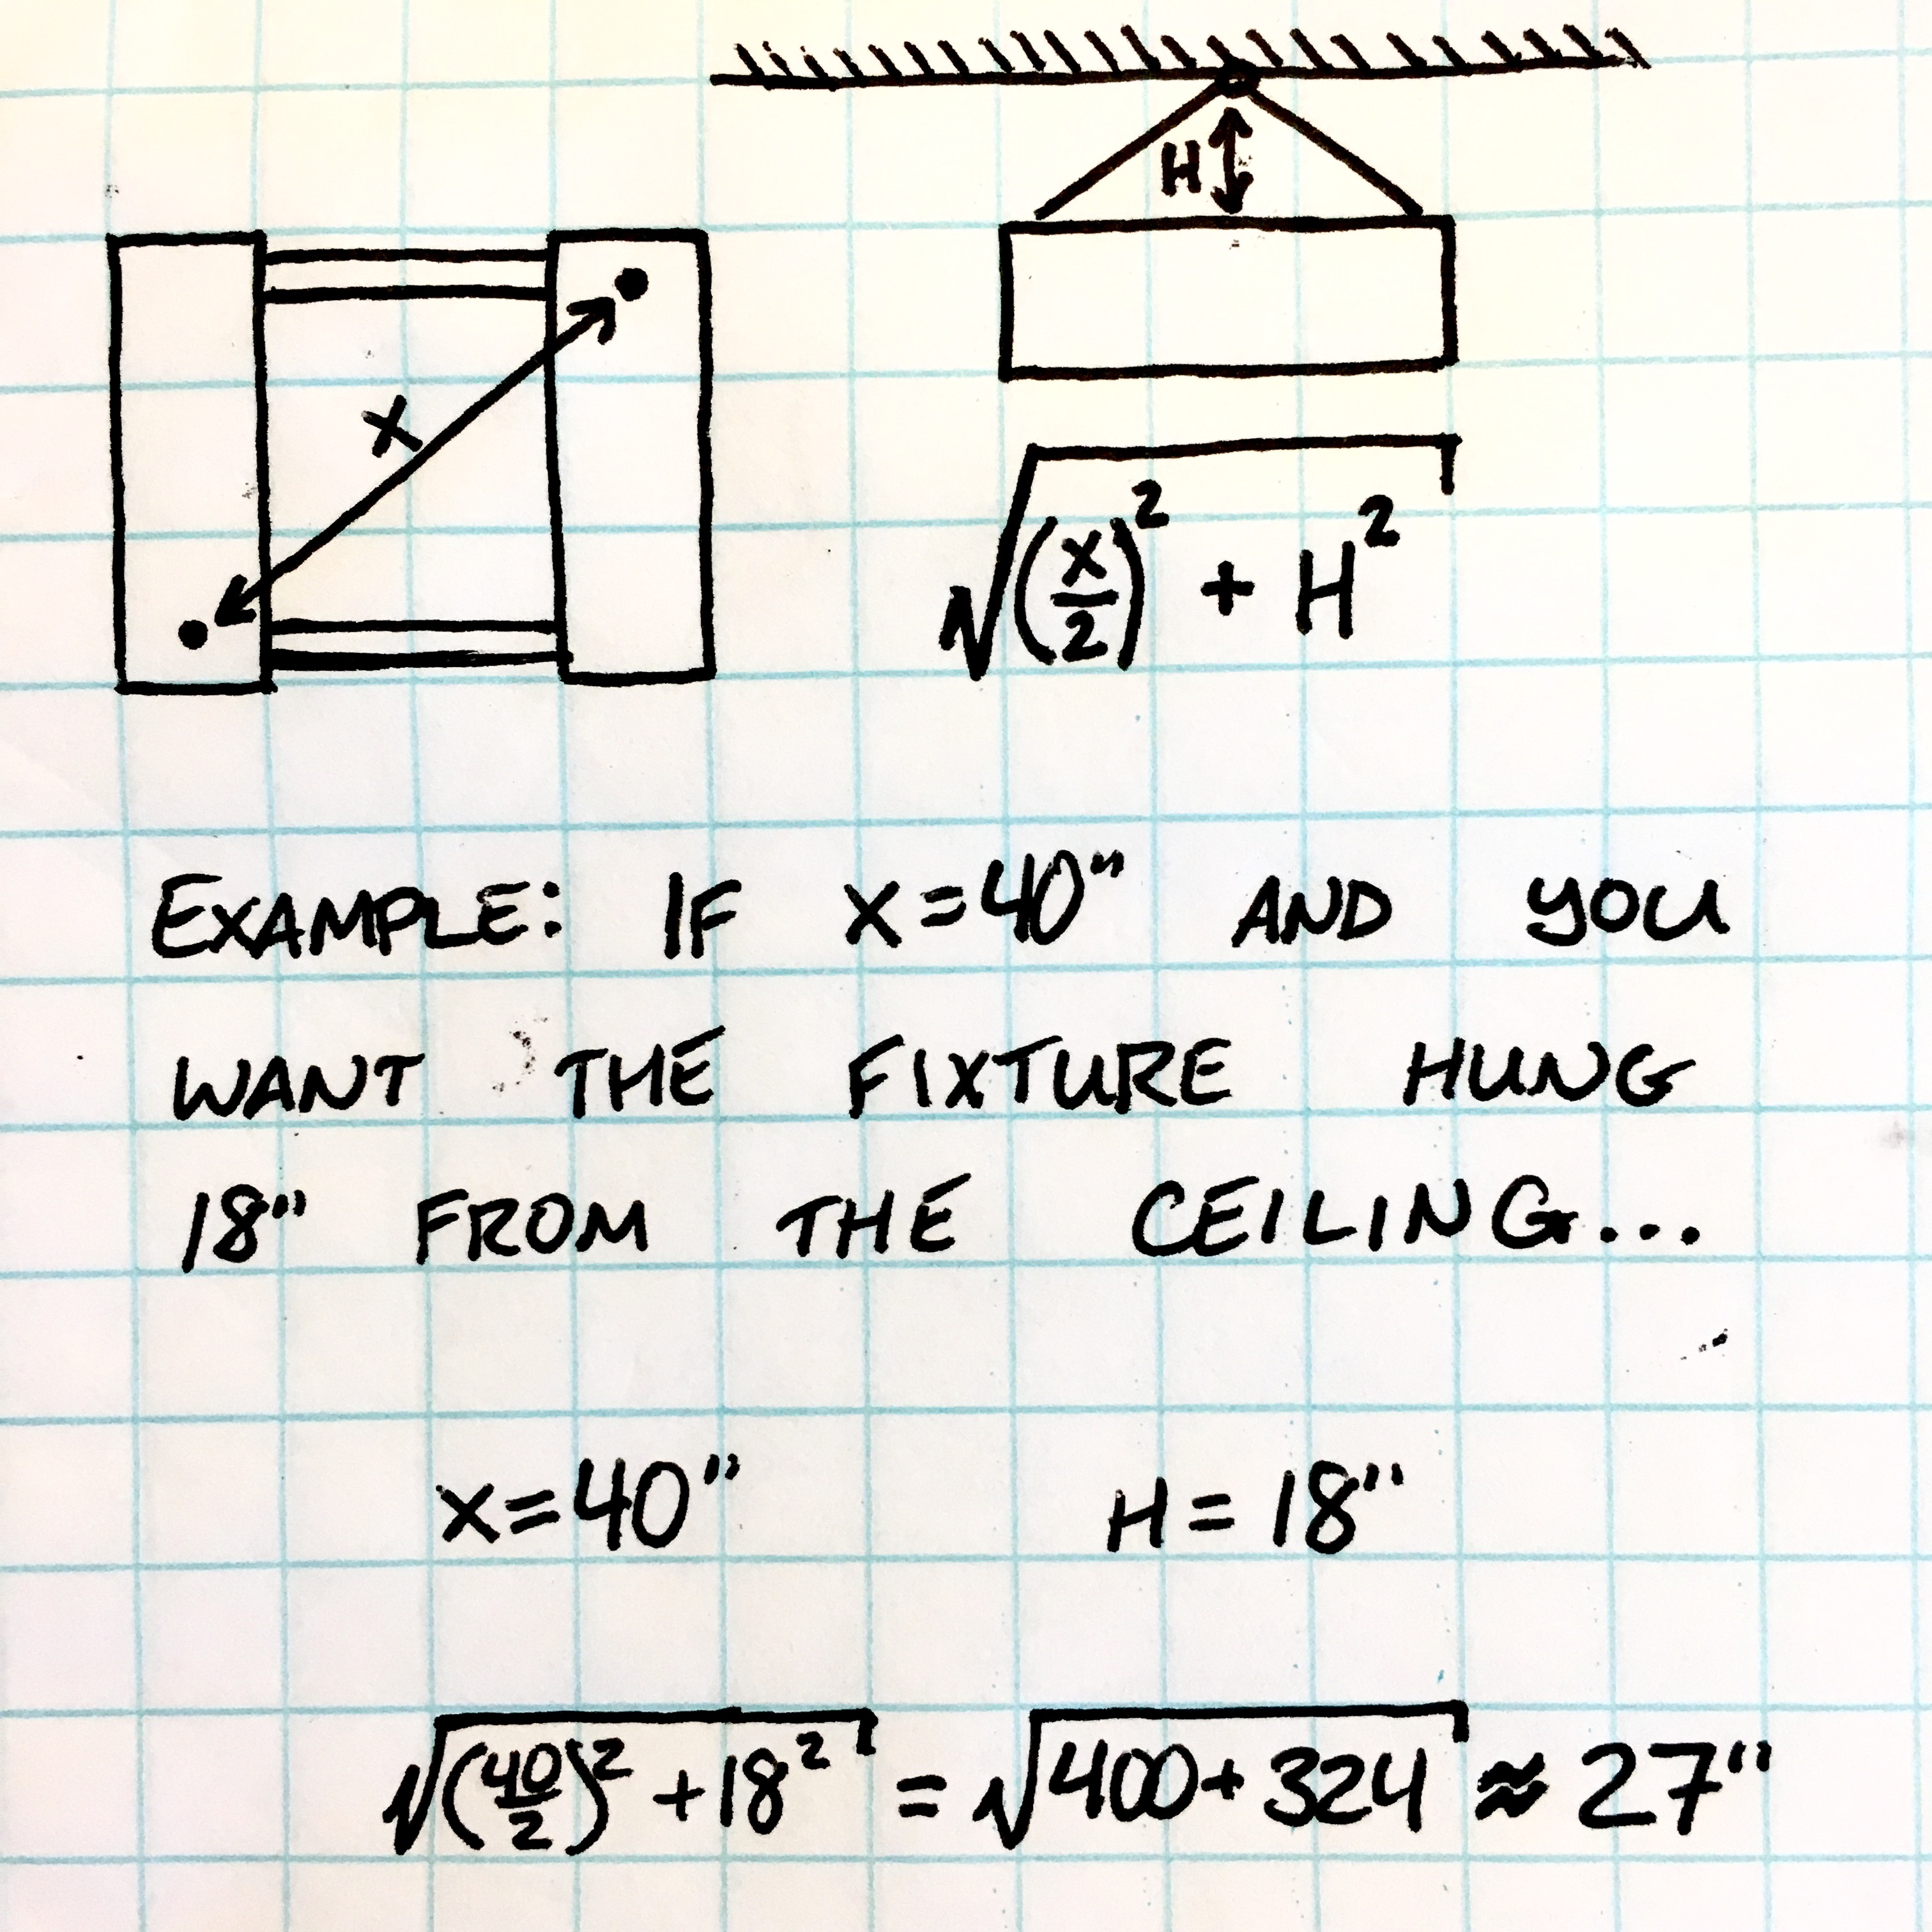 H
X
√((X/2)² + H²)
EXAMPLE: IF X=40" AND YOU
WANT THE FIXTURE HUNG
18" FROM THE CEILING...
X=40" H=18"
√((40/2)²+18²) = √(400+324) ≈ 27"